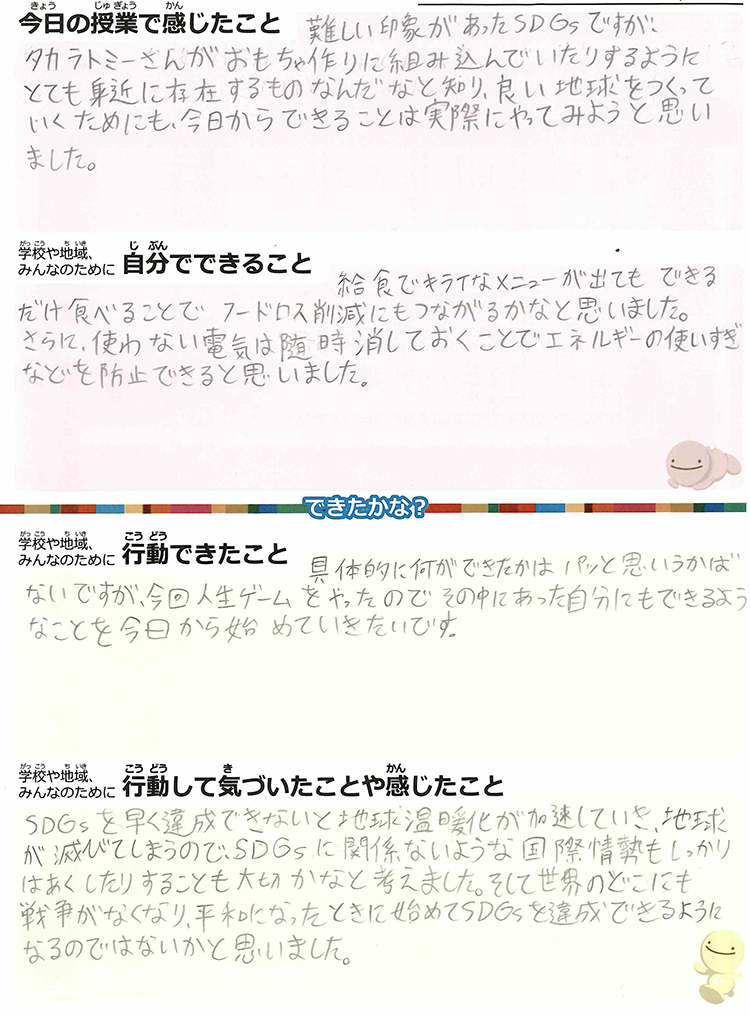 きょう じゅぎょう かん
今日の授業で感じたこと
難しい印象があったSDGsですが、
タカラトミーさんがおもちゃ作りに組み込んでいたりするように
とても身近に存在するものなんだなと知り、良い地球をつくって
いくためにも、今日からできることは実際にやってみようと思い
ました。
がっこう ちいき
学校や地域、
みんなのために
じ ぶん
自分でできること
給食でキライなメニューが出てもできる
だけ食べることでフードロス削減にもつながるかなと思いました。
さらに、使わない電気は随時消しておくことでエネルギーの使いすぎ
などを防止できると思いました。
できたかな?
がっこう ちいき
学校や地域、
みんなのために
こうどう
行動できたこと
具体的に何ができたかはパッと思いうかば
ないですが、今回人生ゲームをやったのでその中にあった自分にもできるよう
なことを今日から始めていきたいです。
がっこう ちいき
学校や地域、
みんなのために
こうどう き かん
行動して気づいたことや感じたこと
SDGsを早く達成できないと地球温暖化が加速していき、地球
が滅びてしまうので、SDGsに関係ないような国際情勢もしっかり
はあくしたりすることも大切かなと考えました。そして世界のどこにも
戦争がなくなり、平和になったときに始めてSDGsを達成できるように
なるのではないかと思いました。